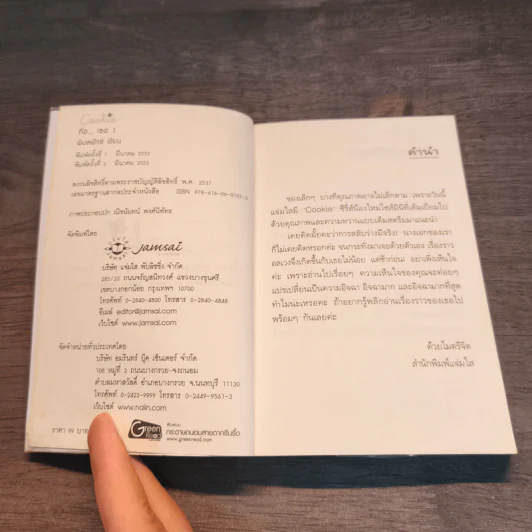 Cookie
คือ... เธอ 1
พิมพ์ครั้งที่ 1 มีนาคม 2553
พิมพ์ครั้งที่ 2 มีนาคม 2553
สงวนลิขสิทธิ์ตามพระราชบัญญัติลิขสิทธิ์ พ.ศ. 2537
เลขมาตรฐานสากลประจำหนังสือ ISBN 978-616-06-0207-2
ภาพประกอบปก ณิชนันทน์ พงศ์นิพัทธ
จัดพิมพ์โดย
jamsai
บริษัท แจ่มใส พับลิชชิ่ง จำกัด
285/33 ถนนจรัญสนิทวงศ์ แขวงบางขุนศรี
เขตบางกอกน้อย กรุงเทพฯ 10700
โทรศัพท์ 0-2840-4800 โทรสาร 0-2840-4848
อีเมล์ editor@jamsai.com
เว็บไซต์ www.jamsai.com
จัดจำหน่ายทั่วประเทศโดย
บริษัท อมรินทร์ บุ๊ค เซ็นเตอร์ จำกัด
108 หมู่ที่ 2 ถนนบางกรวย-จงถนอม
ตำบลมหาสวัสดิ์ อำเภอบางกรวย จ.นนทบุรี 11130
โทรศัพท์ 0-2423-9999 โทรสาร 0-2449-9561-3
เว็บไซต์ www.naiin.com
ราคา 99 บาท
Green Read
กระดาษถนอมสายตากรีนรี้ด
www.greenread.com
คำนำ
ของเล็กๆ บางทีคุณภาพอาจไม่เล็กตาม เพราะวันนี้
แจ่มใสมี 'Cookie' ซีรี่ส์น้องใหม่ไซส์มินิที่เติมเปี่ยมไป
ด้วยคุณภาพและความหวานแบบเติมสตรีมมาแนะนำ
เคยคิดมั้ยคะว่าการสลับร่างมีจริง! นางเอกของเรา
ก็ไม่เคยคิดหรอกค่ะ จนกระทั่งมาเจอด้วยตัวเอง เรื่องราว
อลเวงจึงเกิดขึ้นกับเธอไม่น้อย แต่ช้าก่อน! อย่าเพิ่งเห็นใจ
ค่ะ เพราะอ่านไปเรื่อยๆ ความเห็นใจของคุณจะค่อยๆ
แปรเปลี่ยนเป็นความอิจฉา อิจฉามาก และอิจฉามากที่สุด
ทำไมน่ะเหรอคะ ถ้าอยากรู้พลิกอ่านเรื่องราวของเธอไป
พร้อมๆ กันเลยค่ะ
ด้วยไมตรีจิต
สำนักพิมพ์แจ่มใส